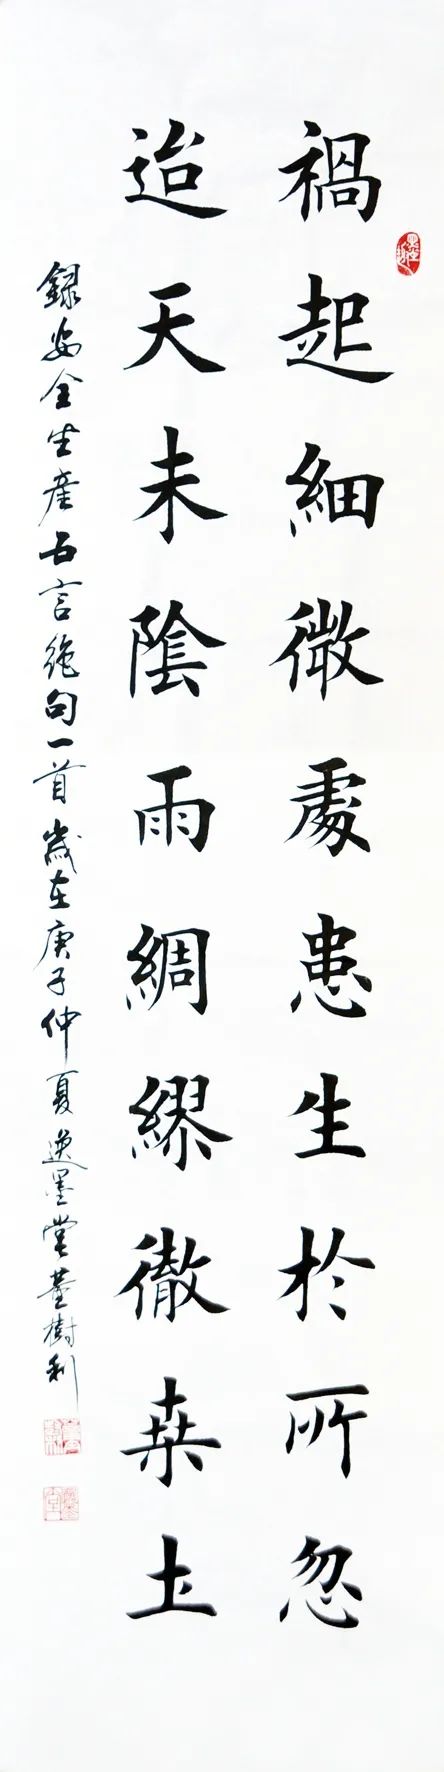 禍起細微處患生於所忽
迨天未陰雨綢繆徹桑土
録安全生産五言絶句一首歲在庚子仲夏逸墨堂董樹利